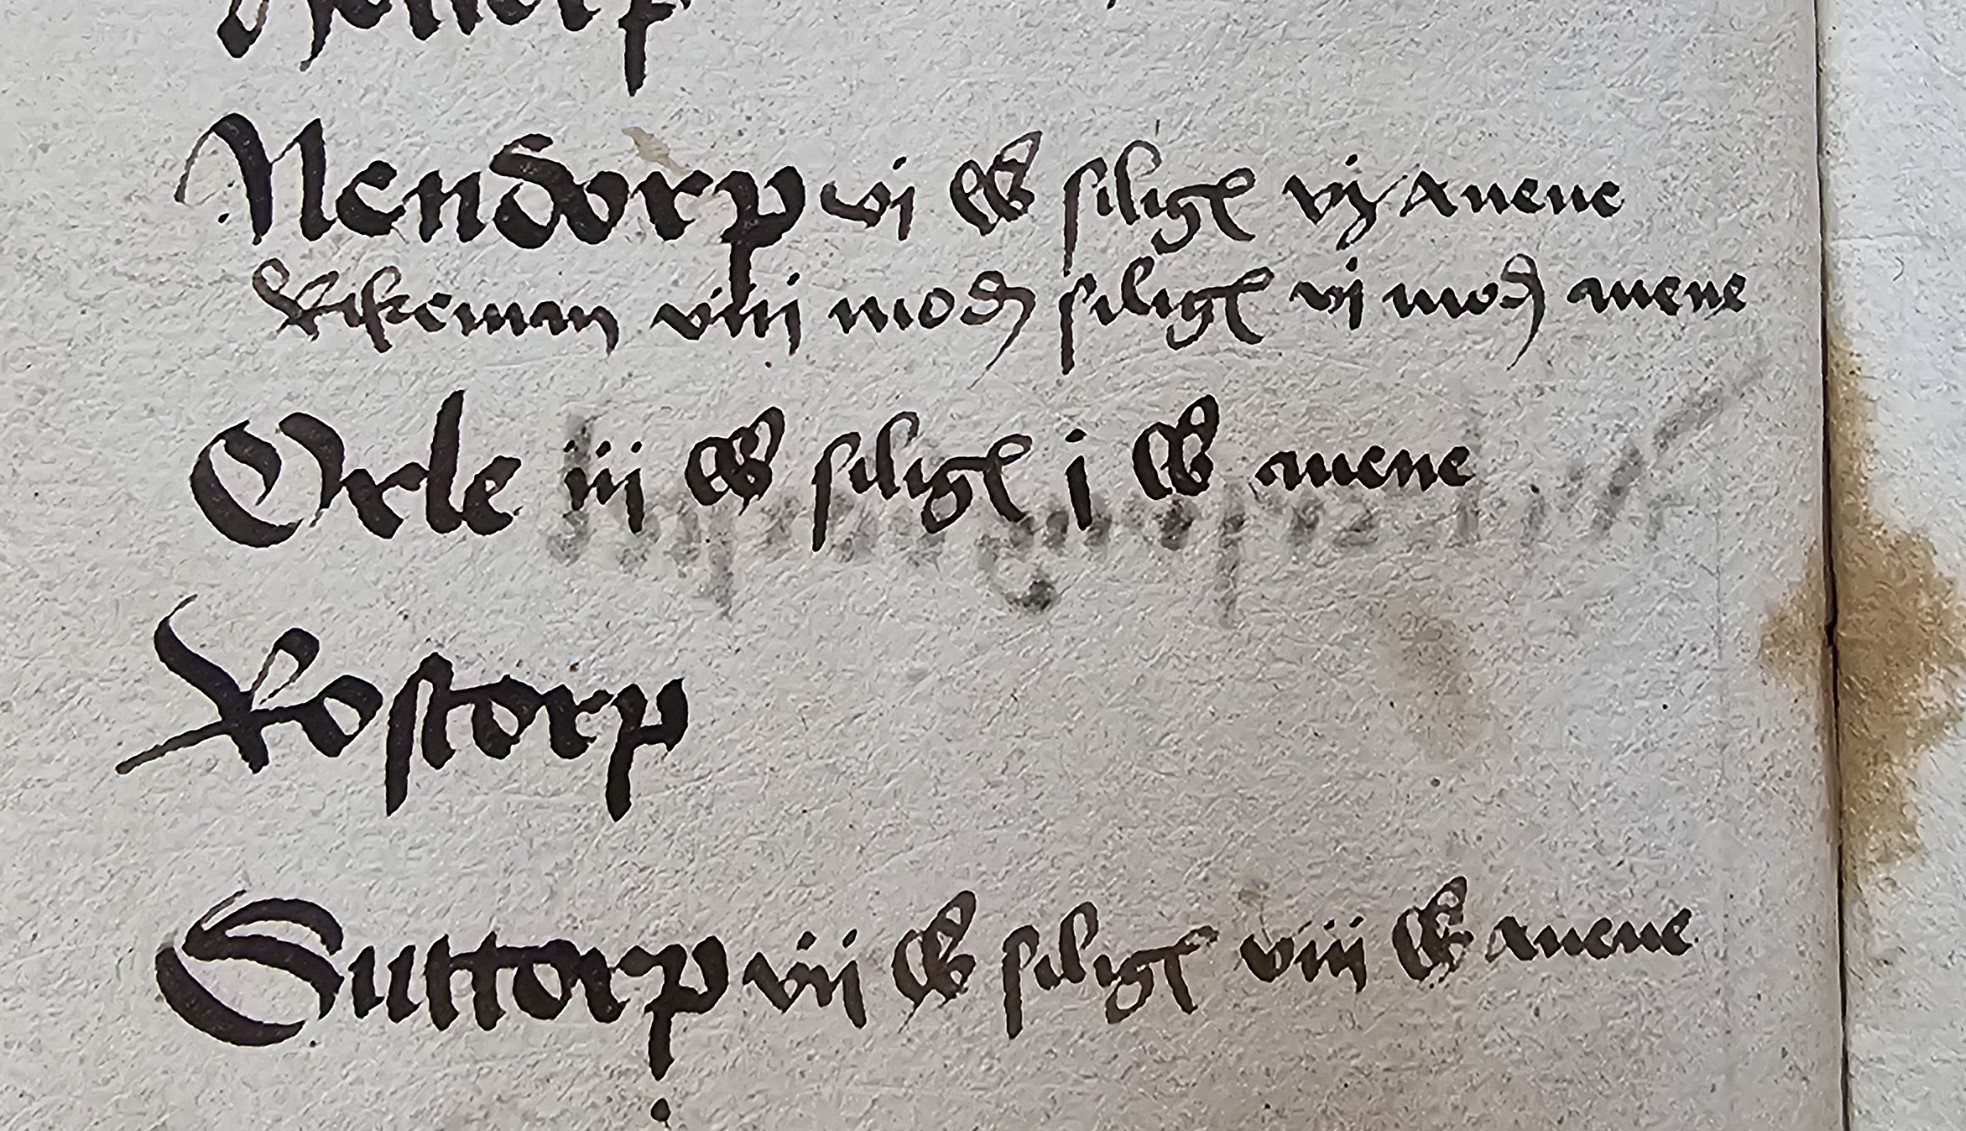 Nendorp vi siligꝭ vij auene
Rikeman viii mod siligꝭ vi mod auene
Orle iii siligꝭ j auene
Rostorp
Suttorp vii siligꝭ viii auene